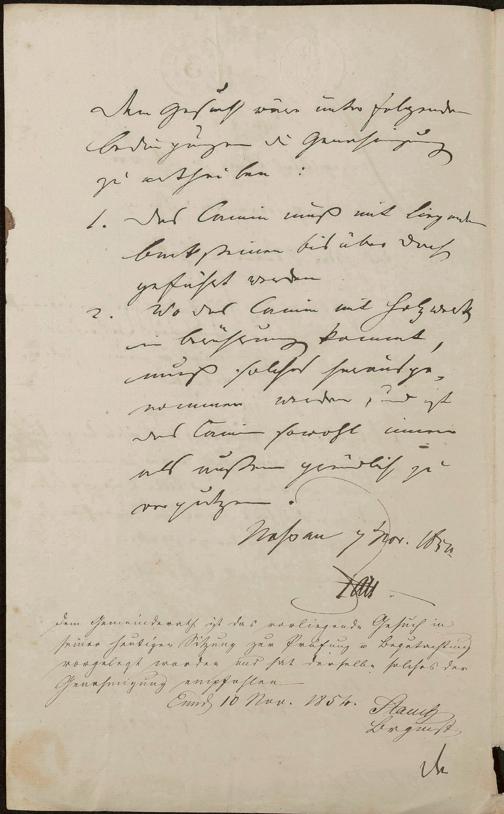 Dem Gesuch wäre unter folgenden
bedingungen die Genehmigung
zu ertheilen :
1. das Camin muß mit liegenden
backsteinen bis über Dach
geführt werden
2. Wo das Camin mit Holzwerk
in berührung kommt,
muß solches herausge-
nommen werden, und ist
das Camin sowohl innen
als außen gründlich zu
verputzen.
Nassau 7 Nov. 1854
dem Gemeinderath ist das vorliegende Gesuch in
seiner heutigen Sitzung zur Prüfung u Begutachtung
vorgelegt worden und hat derselbe solches der
Genehmigung empfohlen
10 Nov. 1854.
Brgmst